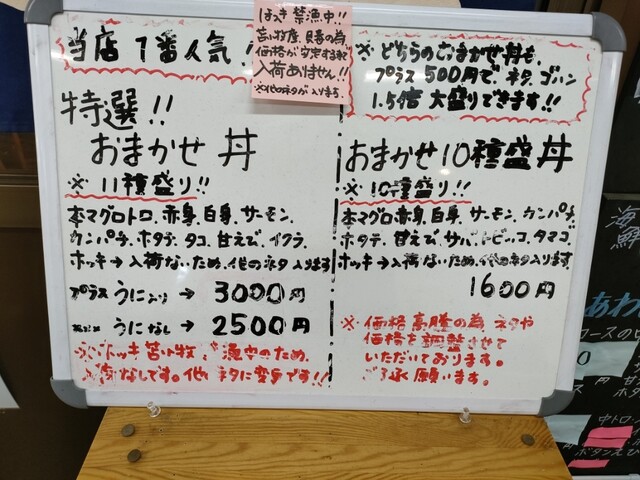 当店1番人気!
ほっき禁漁中!!
苫小牧産、貝毒の為
価格が安定するまで
入荷ありません!!
※他のネタが入ります。
※どちらのおまかせ丼も、
プラス500円で、ネタ、ゴハン
1.5倍 大盛りできます!!
特選!!
おまかせ丼
※11種盛り!!
本マグロトロ、赤身、白身、サーモン、
カンパチ、ホタテ、タコ、甘えび、イクラ、
ホッキ→入荷ないため、他のネタ入ります
プラス うに入り → 3000円
うになし → 2500円
※ホッキ苫小牧、禁漁中のため、
入荷なしです。他ネタに変更です!!
おまかせ10種盛丼
※10種盛り!!
本マグロ赤身、白身、サーモン、カンパチ、
ホタテ、甘えび、サバ、トビッコ、タマゴ、
ホッキ→入荷ないため、他のネタ入ります
1600円
※価格高騰の為ネタや
価格を調整させて
いただいております。
ご了承願います。
海鮮
あわ
コースの中
円
中トロ
ボタンえび